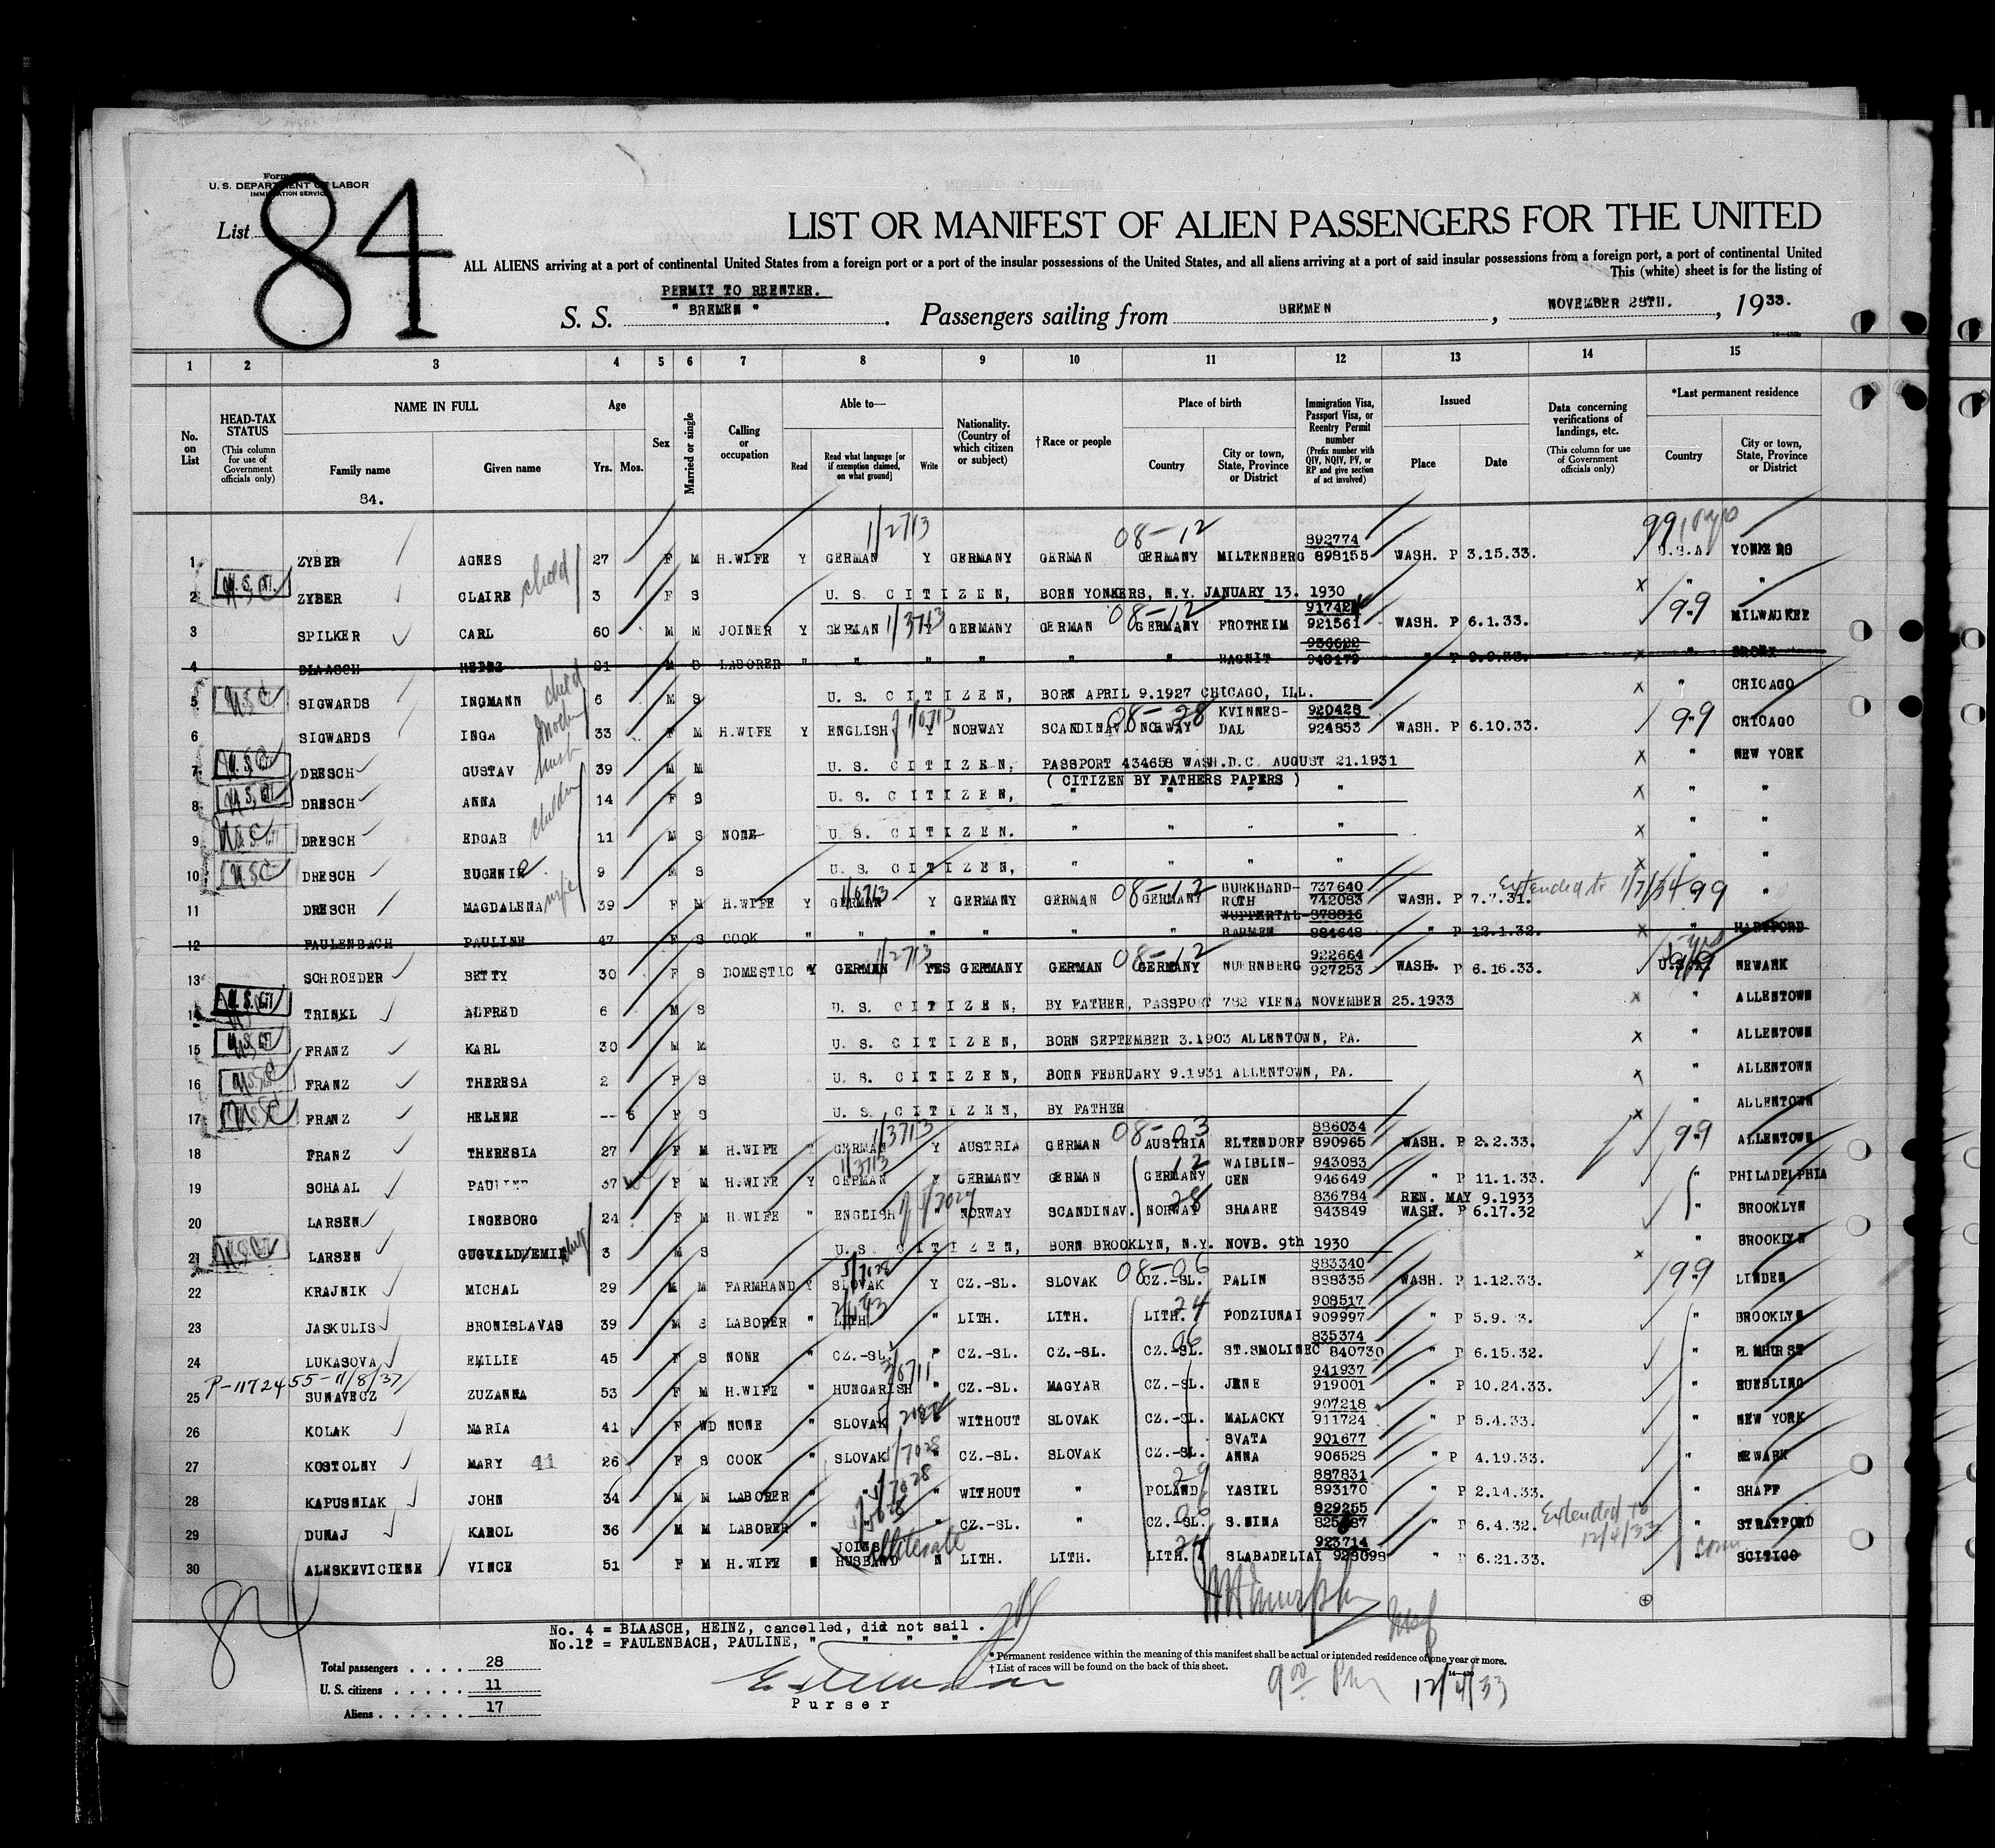 Form
U. S. DEPARTMENT OF LABOR
IMMIGRATION SERVICE
List 84
LIST OR MANIFEST OF ALIEN PASSENGERS FOR THE UNITED
ALL ALIENS arriving at a port of continental United States from a foreign port or a port of the insular possessions of the United States, and all aliens arriving at a port of said insular possessions from a foreign port, a port of continental United
This (white) sheet is for the listing of
PERMIT TO REENTER.
S. S. " BREMEN ". Passengers sailing from BREMEN, NOVEMBER 28TH., 1933.
1 2 3 4 5 6 7 8 9 10 11 12 13 14 15
No. on List
HEAD-TAX STATUS (This column for use of Government officials only)
NAME IN FULL
Family name
Given name
Age
Yrs. Mos.
Sex
Married or single
Calling or occupation
Able to—
Read
Read what language [or if exemption claimed, on what ground]
Write
Nationality. (Country of which citizen or subject)
†Race or people
Place of birth
Country
City or town, State, Province or District
Immigration Visa, Passport Visa, or Reentry Permit number (Prefix number with QIV, NQIV, PV, or RP and give section of act involved)
Issued
Place
Date
Data concerning verifications of landings, etc. (This column for use of Government officials only)
*Last permanent residence
Country
City or town, State, Province or District
84.
1/2713 08-12 892774 99
1 ZYBER AGNES 27 F M H.WIFE Y GERMAN Y GERMANY GERMAN GERMANY MILTENBERG 898155 WASH. P 3.15.33. U.S.A. YONKERS
2 U.S. Cit. ZYBER CLAIRE child 3 F S U. S. CITIZEN, BORN YONKERS, N.Y. JANUARY 13. 1930 x " "
3 SPILKER CARL 60 M M JOINER Y GERMAN 1/3713 Y GERMANY GERMAN 08-12 GERMANY FROTHEIM 921561 WASH. P 6.1.33. 99 MILWAUKEE
4 BLAASCH HEINZ 21 M S LABORER " " " " " " RAGNIT 936622 940179 " P 9.9.33. x " BRONX
5 USC SIGWARDS INGMANN child 6 M S U. S. CITIZEN, BORN APRIL 9.1927 CHICAGO, ILL. x " CHICAGO
6 SIGWARDS INGA mother 33 F M H.WIFE Y ENGLISH Y NORWAY SCANDINAV. 08-28 NORWAY KVINNESDAL 920428 924853 WASH. P 6.10.33. 99 CHICAGO
7 U.S. Cit. DRESCH GUSTAV husb 39 M M U. S. CITIZEN, PASSPORT 434658 WASH.D.C. AUGUST 21.1931 x " NEW YORK
( CITIZEN BY FATHERS PAPERS )
8 U.S. Cit. DRESCH ANNA children 14 F S U. S. CITIZEN, " " " " x " "
9 U.S. Cit. DRESCH EDGAR 11 M S NONE U. S. CITIZEN. " " " " x " "
10 USC DRESCH EUGENIE 9 M S U. S. CITIZEN, " " " " x " "
11 DRESCH MAGDALENA wife 39 F M H.WIFE Y GERMAN Y GERMANY GERMAN 08-12 GERMANY BURKHARDROTH 737640 742083 WASH. P 7.7.31. Extended to 1/7/34 99 "
12 FAULENBACH PAULINE 47 F S COOK " " " " " " WUPPERTAL-BARMEN 878816 884648 " P 12.1.32. x " HARTFORD
13 SCHROEDER BETTY 30 F S DOMESTIC Y GERMAN 1/2713 YES GERMANY GERMAN 08-12 GERMANY NUERNBERG 922664 927253 WASH. P 6.16.33. U.S.A. NEWARK
14 U.S. Cit TRINKL ALFRED 6 M S U. S. CITIZEN, BY FATHER, PASSPORT 782 VIENA NOVEMBER 25.1933 x " ALLENTOWN
15 U.S. Cit FRANZ KARL 30 M M U. S. CITIZEN, BORN SEPTEMBER 3.1903 ALLENTOWN, PA. x " ALLENTOWN
16 USC FRANZ THERESA 2 F S U. S. CITIZEN, BORN FEBRUARY 9.1931 ALLENTOWN, PA. x " ALLENTOWN
17 USC FRANZ HELENE -- 6 F S U. S. CITIZEN, BY FATHER x " ALLENTOWN
18 FRANZ THERESIA 27 F M H.WIFE Y GERMAN 1/3713 Y AUSTRIA GERMAN 08-03 AUSTRIA ELTENDORF 886034 890965 WASH. P 2.2.33. 99 ALLENTOWN
19 SCHAAL PAULINE 37 F M H.WIFE Y GERMAN 1/3713 Y GERMANY GERMAN 12 GERMANY WAIBLINGEN 943083 946649 " P 11.1.33. " PHILADELPHIA
20 LARSEN INGEBORG 24 F M H.WIFE " ENGLISH NORWAY SCANDINAV. 28 NORWAY SHAARE 836784 843849 REN. MAY 9.1933 WASH. P 6.17.32 " BROOKLYN
21 LARSEN GUGVALD/EMIL child 3 M S U.S. CITIZEN, BORN BROOKLYN, N.Y. NOVB. 9th 1930 x " BROOKLYN
22 KRAJNIK MICHAL 29 M M FARMHAND Y SLOVAK 5/7028 Y CZ.-SL. SLOVAK 08-06 CZ.-SL. PALIN 883340 888335 WASH. P 1.12.33. 99 LINDEN
23 JASKULIS BRONISLAVAS 39 M S LABORER " LITH " LITH. LITH. LITH. 24 PODZIUNAI 908517 909997 " P 5.9. 3. " BROOKLYN
24 LUKASOVA EMILIE 45 F S NONE " CZ.-SL. " CZ.-SL. CZ.-SL. CZ.-SL. 06 ST.SMOLINEC 835374 840730 " P 6.15.32. " ELMHURST
P-1172455-11/8/37
25 SUNAVECZ ZUZANNA 53 F M H.WIFE " HUNGARISH " CZ.-SL. MAGYAR CZ.-SL. JENE 941937 919001 " P 10.24.33. " RUEBLING
26 KOLAK MARIA 41 F WD NONE " SLOVAK WITHOUT SLOVAK CZ.-SL. MALACKY 907218 911724 " P 5.4.33. " NEW YORK
27 KOSTOLNY MARY 41 26 F S COOK " SLOVAK " CZ.-SL. SLOVAK CZ.-SL. SVATA ANNA 901677 906528 " P 4.19.33. " NEWARK
28 KAPUSNIAK JOHN 34 M M LABORER " " 5/7028 " WITHOUT " POLAND 29 YASIEL 887831 893170 " P 2.14.33. " SHAFF
29 DUNAJ KAROL 36 M M LABORER " " " CZ.-SL. " CZ.-SL. 06 S.NINA 829255 " P 6.4.32. Extended to 12/4/33 " STRATFORD
30 ALESKEVICIENE VINCE 51 F M H.WIFE N JOINS HUSBAND illiterate N LITH. LITH. LITH. 24 SLABADELIAI 923714 928098 " P 6.21.33. " Conn. SCITICO
84
No. 4 = BLAASCH, HEINZ, cancelled, did not sail .
No.12 = FAULENBACH, PAULINE, " " " "
Total passengers . . . . 28
U. S. citizens . . . . . 11
Aliens . . . . . . 17
Purser
* Permanent residence within the meaning of this manifest shall be actual or intended residence of one year or more.
† List of races will be found on the back of this sheet.
9 00 Pm 12/4/33